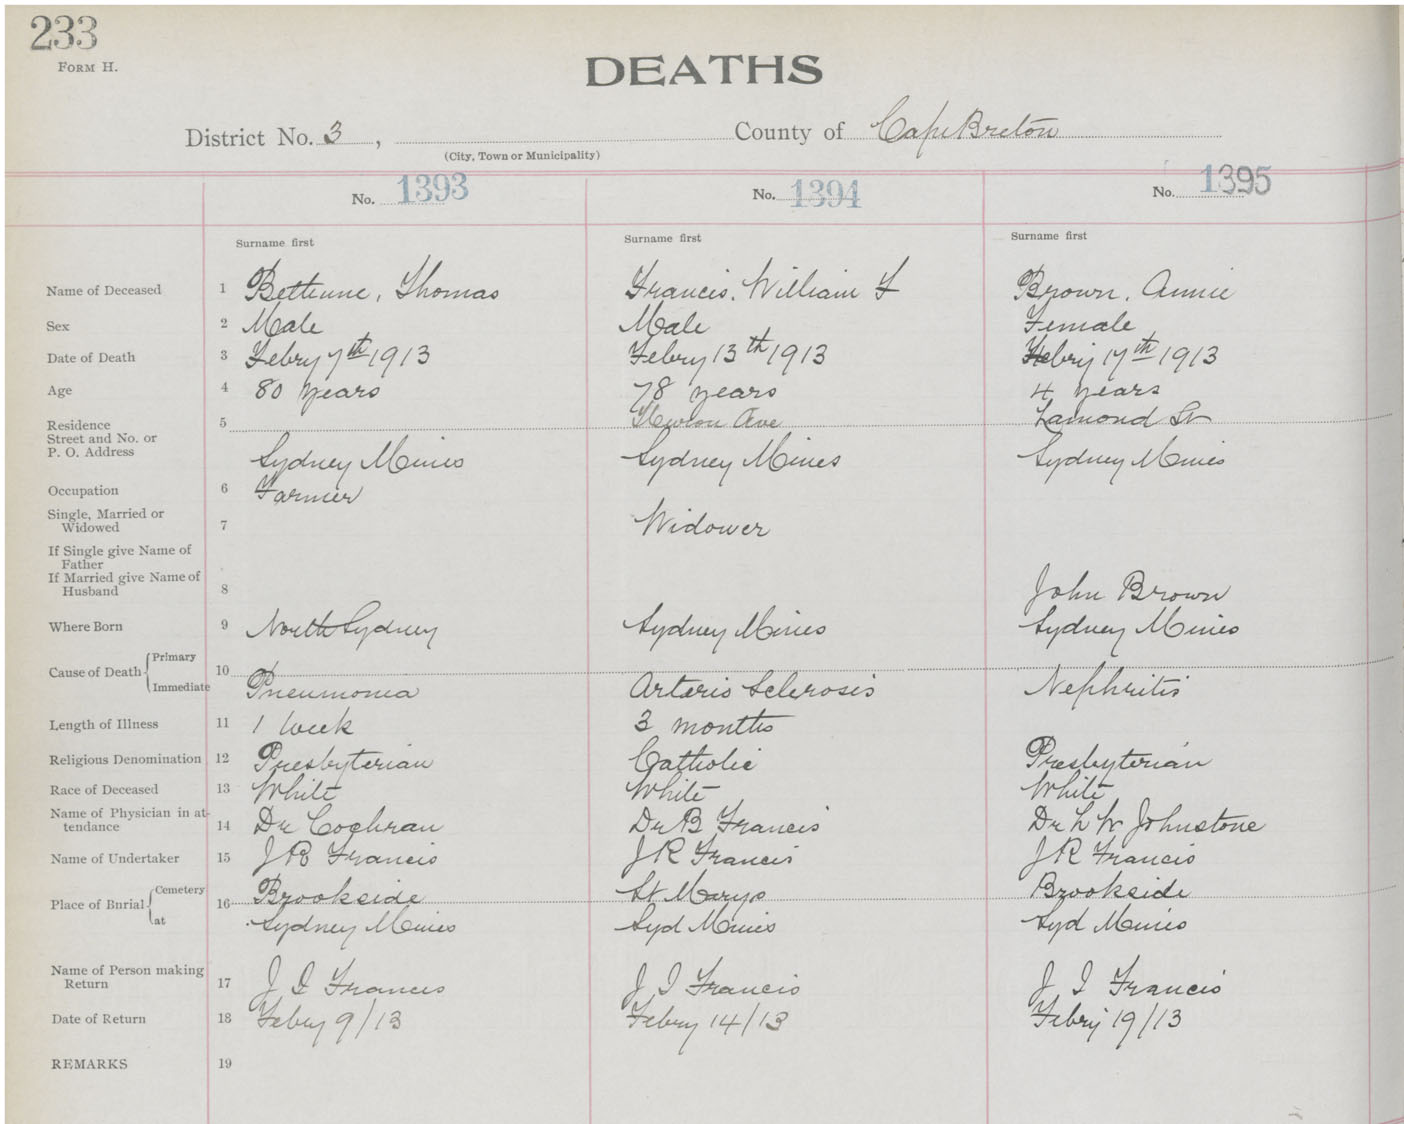 233
FORM H.
DEATHS
District No. 3, County of Cape Breton
(City, Town or Municipality)
No. 1393 No. 1394 No. 1395
Surname first Surname first Surname first
Name of Deceased 1 Thomas Francis, William F Brown, Annie
Sex 2 Male Male Female
Date of Death 3 Febry 7th 1913 Febry 13th 1913 Febry 17th 1913
Age 4 80 years 78 years 4 years
Residence 5 Ave Lamond St
Street and No. or
P. O. Address Sydney Mines Sydney Mines Sydney Mines
Occupation 6 Farmer
Single, Married or
Widowed 7 Widower
If Single give Name of
Father
If Married give Name of
Husband 8 John Brown
Where Born 9 North Sydney Sydney Mines Sydney Mines
Cause of Death Primary 10
Immediate Pneumonia Arterio Sclerosis Nephritis
Length of Illness 11 1 week 3 months
Religious Denomination 12 Presbyterian Catholic Presbyterian
Race of Deceased 13 White White White
Name of Physician in at-
tendance 14 Dr Cochran Dr B Francis Dr L W Johnstone
Name of Undertaker 15 J R Francis J R Francis J R Francis
Place of Burial Cemetery 16 Brookside St Marys Brookside
at Sydney Mines Syd Mines Syd Mines
Name of Person making
Return 17 J I Francis J I Francis J I Francis
Date of Return 18 Febry 9/13 Febry 14/13 Febry 19/13
REMARKS 19